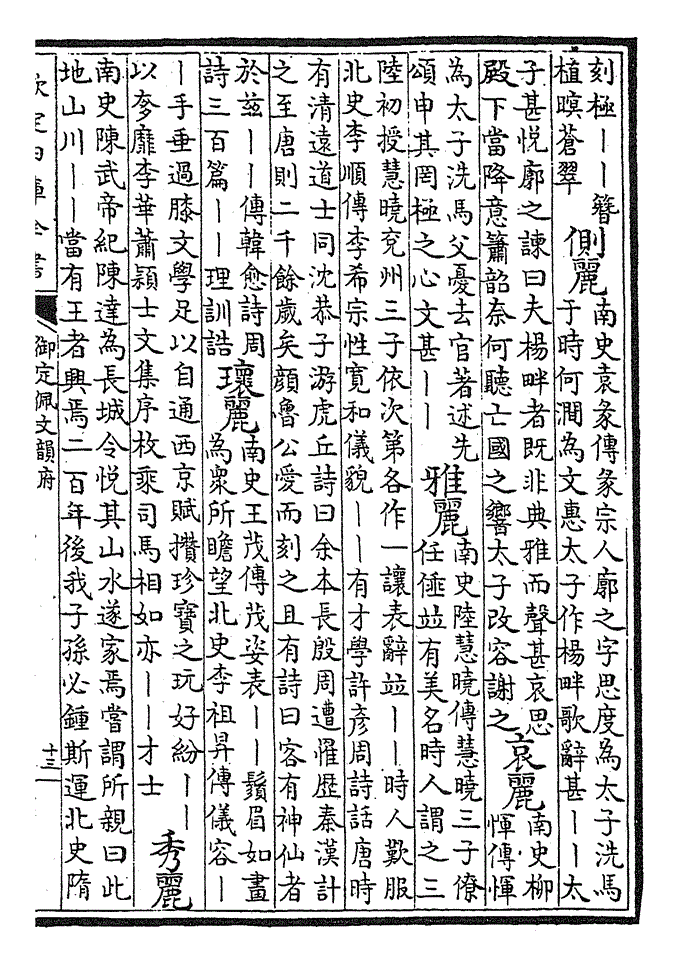 刻極——簮
植暝蒼翠
側麗
南史袁彖傳彖宗人廓之字思度為太子洗馬
于時何澗為文惠太子作楊畔歌辭甚——太
子甚悦廓之諫曰夫楊畔者既非典雅而聲甚哀思
殿下當降意簫韶奈何聽亡國之響太子改容謝之
哀麗
南史柳
惲傳惲
為太子洗馬父憂去官著述先
頌申其罔極之心文甚——
雅麗
南史陸慧曉傳慧曉三子僚
任倕竝有美名時人謂之三
陸初授慧曉兖州三子依次第各作一讓表辭竝——時人歎服
北史李順傳李希宗性寛和儀貌——有才學許彦周詩話唐時
有清遠道士同沈恭子游虎丘詩曰余本長殷周遭罹歴秦漢計
之至唐則二千餘歲矣顔魯公愛而刻之且有詩曰客有神仙者
於兹——傳韓愈詩周
詩三百篇——理訓誥
瓌麗
南史王茂傳茂姿表——鬚眉如畫
為衆所瞻望北史李祖昇傳儀容—
—手垂過膝文學足以自通西京賦攢珍寶之玩好紛——
以奓靡李華蕭穎士文集序枚乘司馬相如亦——才士
秀麗
南史陳武帝紀陳達為長城令悦其山水遂家焉嘗謂所親曰此
地山川——當有王者興焉二百年後我子孫必鍾斯運北史隋
欽定四庫全書
御定佩文韻府
十三